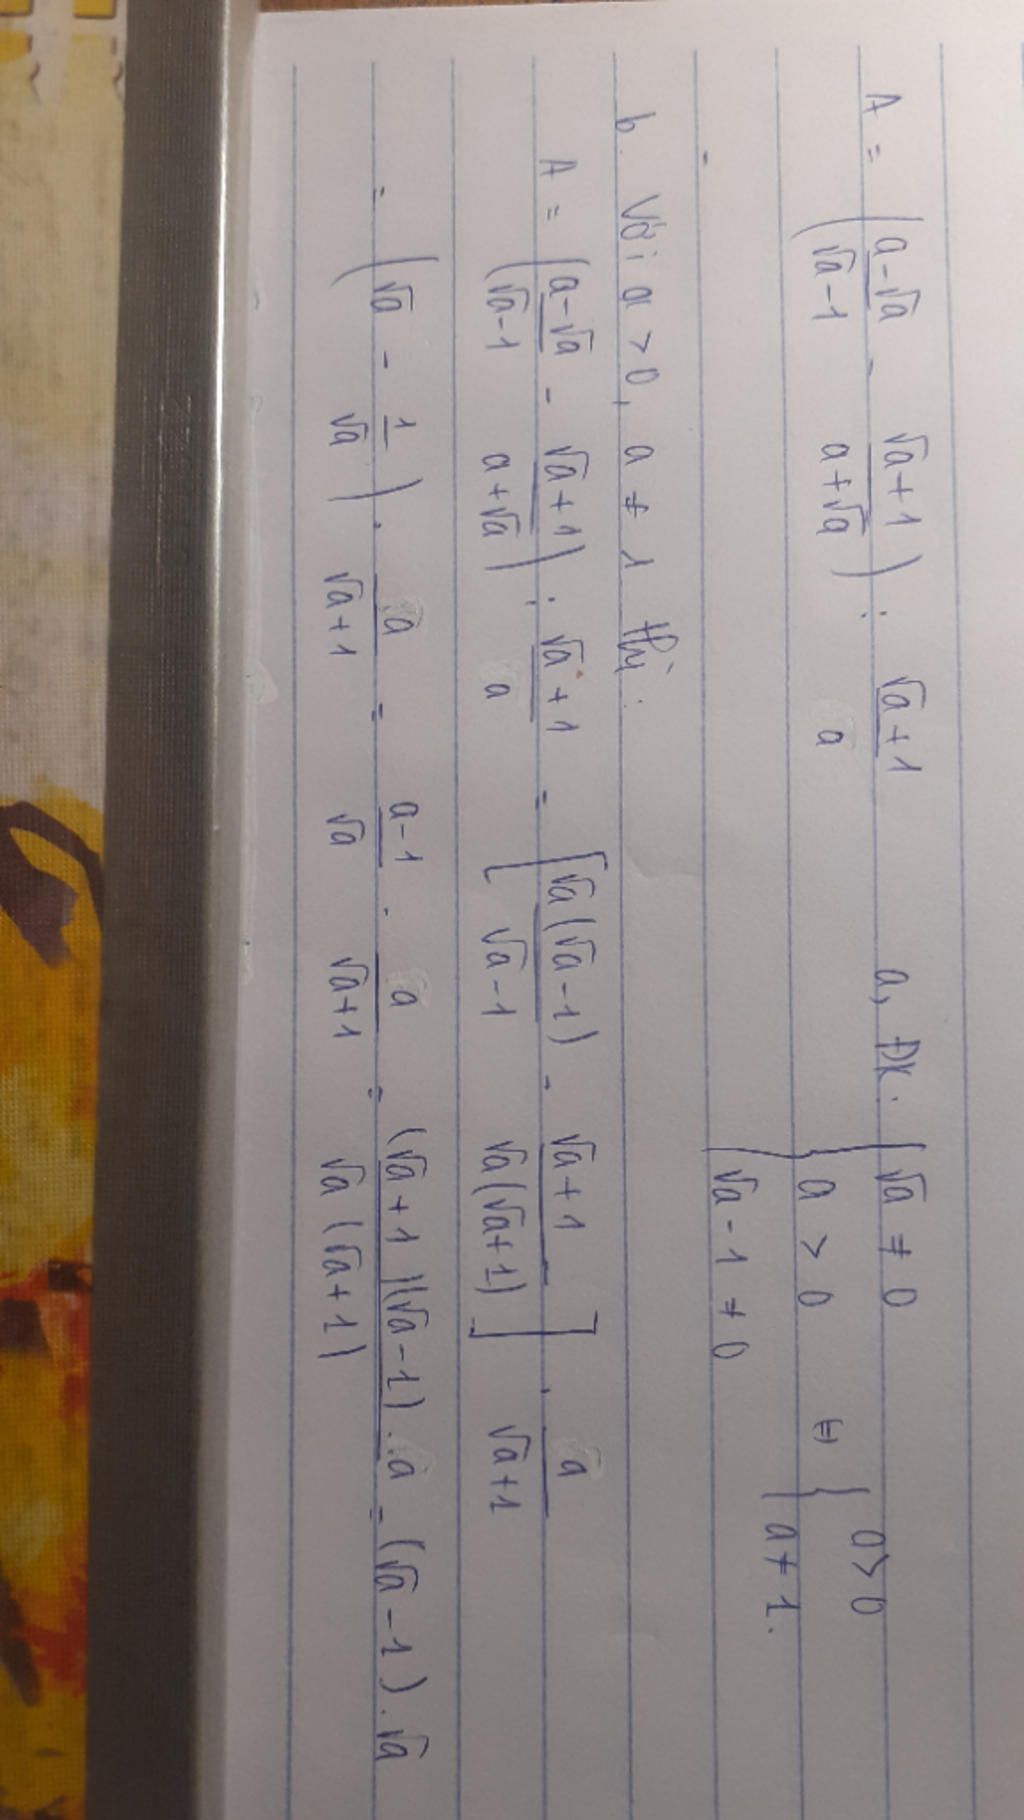 A = ( (a-√a)/(√a-1) - (√a+1)/(a+√a) ) : (√a+1)/a a, ĐK: { √a ≠ 0
a > 0 ⇔ { a>0
√a - 1 ≠ 0 a ≠ 1.
b. Với a > 0, a ≠ 1 thì:
A = ( (a-√a)/(√a-1) - (√a+1)/(a+√a) ) : (√a+1)/a = [ √a(√a-1)/(√a-1) - (√a+1)/(√a(√a+1)) ] . a/(√a+1)
= ( √a - 1/√a ) . a/(√a+1) = (a-1)/√a . a/(√a+1) = (√a+1)(√a-1).a/(√a(√a+1)) = (√a-1).√a